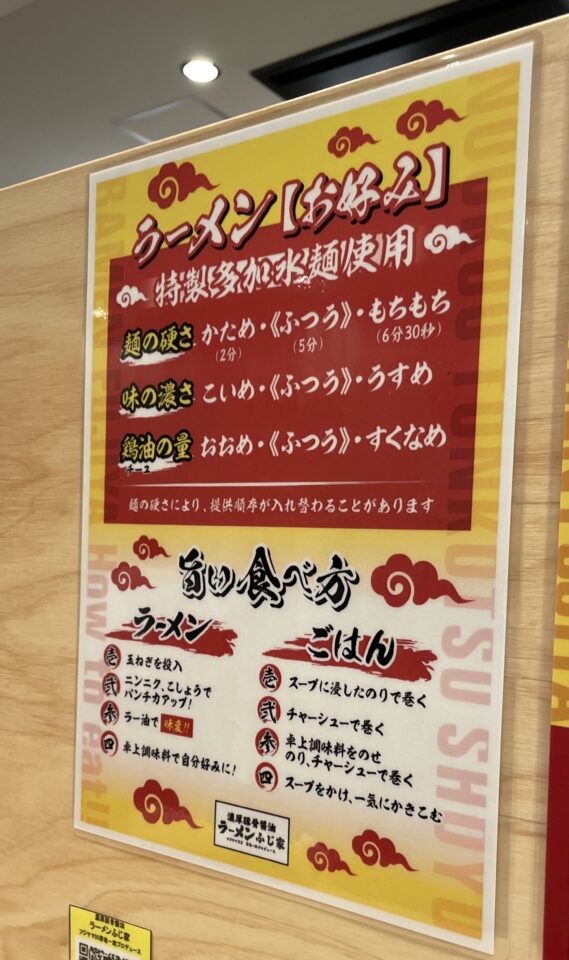 ラーメン【お好み】
特製多加水麺使用
麺の硬さ かため・《ふつう》・もちもち
(2分) (5分) (6分30秒)
味の濃さ こいめ・《ふつう》・うすめ
鶏油の量 おおめ・《ふつう》・すくなめ
チーユ
麺の硬さにより、提供順序が入れ替わることがあります
旨い食べ方
ラーメン
壱 玉ねぎを投入
弐 ニンニク、こしょうで
パンチ力アップ!
参 ラー油で味変!!
四 卓上調味料で自分好みに!
ごはん
壱 スープに浸したのりで巻く
弐 チャーシューで巻く
参 卓上調味料をのせ
のり、チャーシューで巻く
四 スープをかけ、一気にかきこむ
濃厚豚骨醤油
ラーメンふじ家
How to eat!!
濃厚豚骨醤油
ラーメンふじ家